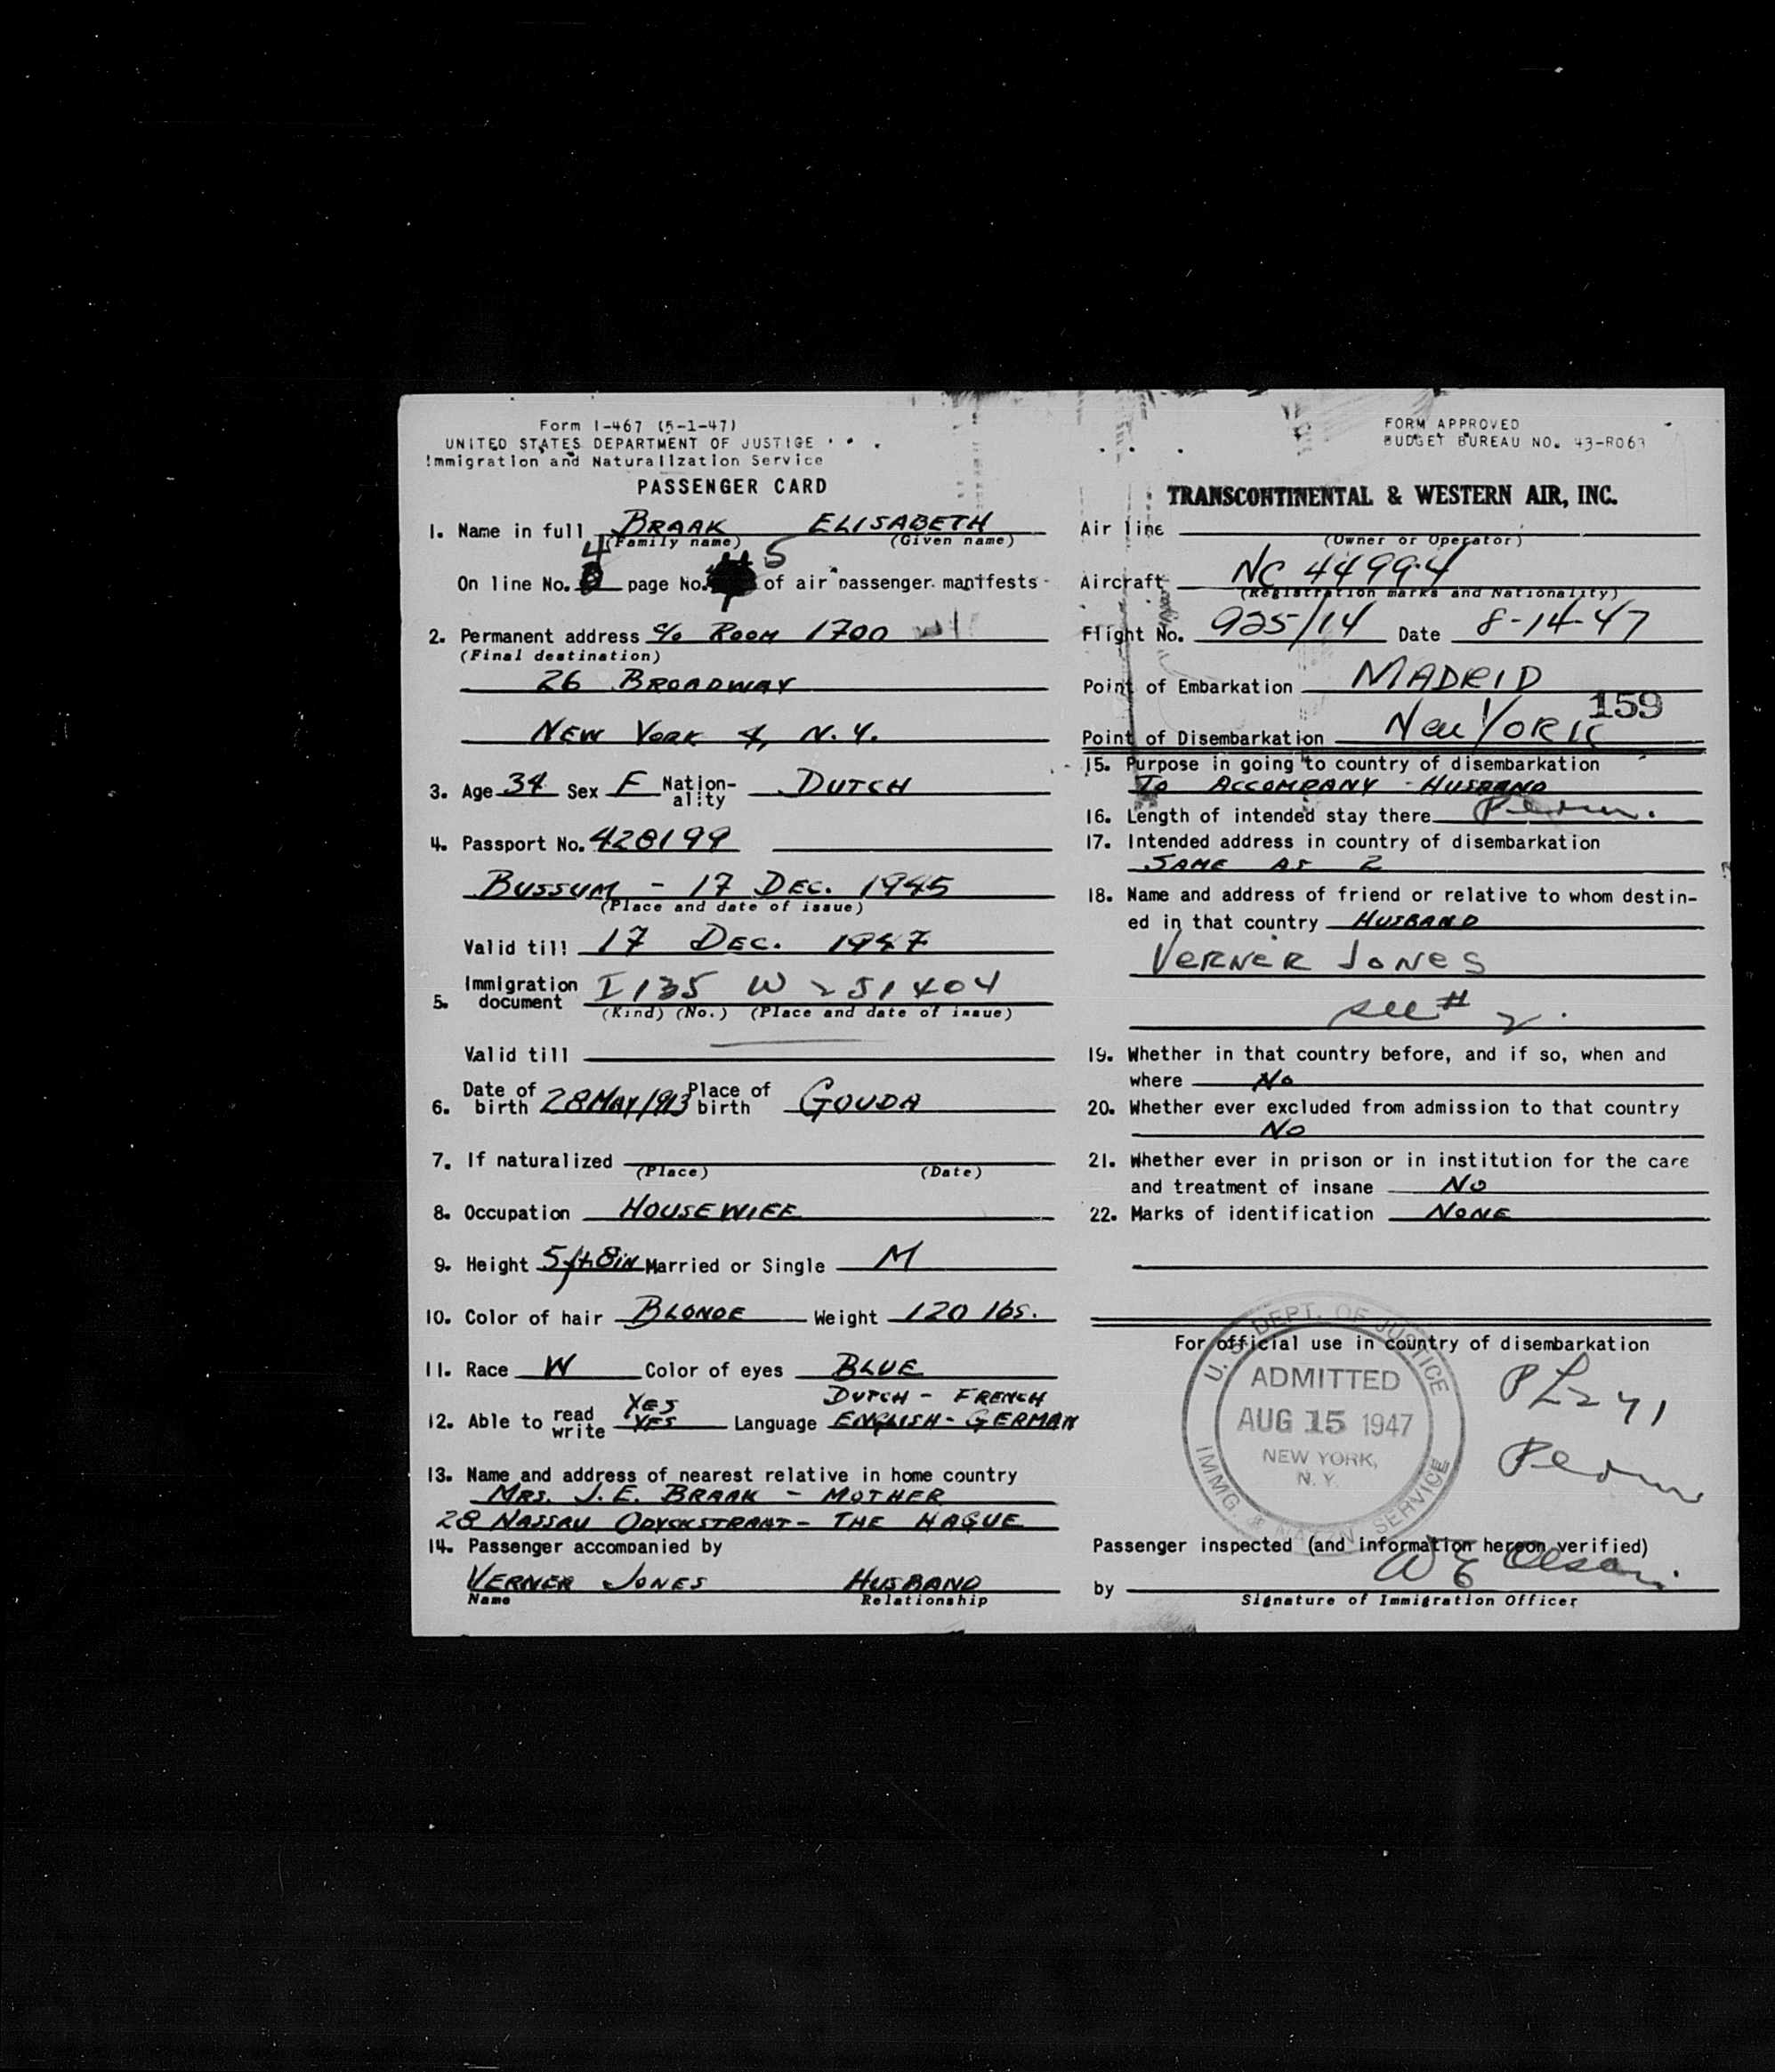 Form I-467 (5-1-47)
UNITED STATES DEPARTMENT OF JUSTICE
Immigration and Naturalization Service
PASSENGER CARD
1. Name in full BRAAK ELISABETH
(Family name) (Given name)
On line No. 4 page No. 5 of air passenger manifests
2. Permanent address c/o ROOM 1700
(Final destination)
26 BROADWAY
NEW YORK 4, N.Y.
3. Age 34 Sex F Nationality DUTCH
4. Passport No. 428199
BUSSUM - 17 DEC. 1945
(Place and date of issue)
Valid till 17 DEC. 1947
5. Immigration document I 135 W 251404
(Kind) (No.) (Place and date of issue)
Valid till
6. Date of birth 28 MAY 1913 Place of birth GOUDA
7. If naturalized
(Place) (Date)
8. Occupation HOUSEWIFE
9. Height 5 ft 8 in Married or Single M
10. Color of hair BLONDE Weight 120 lbs.
11. Race W Color of eyes BLUE
12. Able to read YES write YES Language DUTCH - FRENCH
ENGLISH - GERMAN
13. Name and address of nearest relative in home country
MRS. J. E. BRAAK - MOTHER
28 NASSAU ODYCKSTRAAT - THE HAGUE
14. Passenger accompanied by
VERNER JONES HUSBAND
Name Relationship
FORM APPROVED
BUDGET BUREAU NO. 43-R063
TRANSCONTINENTAL & WESTERN AIR, INC.
Air line
(Owner or Operator)
Aircraft NC 44994
(Registration marks and Nationality)
Flight No. 925/14 Date 8-14-47
Point of Embarkation MADRID
159
Point of Disembarkation New YORK
15. Purpose in going to country of disembarkation
TO ACCOMPANY - HUSBAND
16. Length of intended stay there Perm.
17. Intended address in country of disembarkation
SAME AS 2
18. Name and address of friend or relative to whom destin-
ed in that country HUSBAND
VERNER JONES
see # 2.
19. Whether in that country before, and if so, when and
where No
20. Whether ever excluded from admission to that country
No
21. Whether ever in prison or in institution for the care
and treatment of insane No
22. Marks of identification NONE
For official use in country of disembarkation
U. S. DEPT. OF JUSTICE
ADMITTED
AUG 15 1947
NEW YORK,
N. Y.
IMMG. & NATZN. SERVICE
Perm
Passenger inspected (and information hereon verified)
by W E Olson
Signature of Immigration Officer